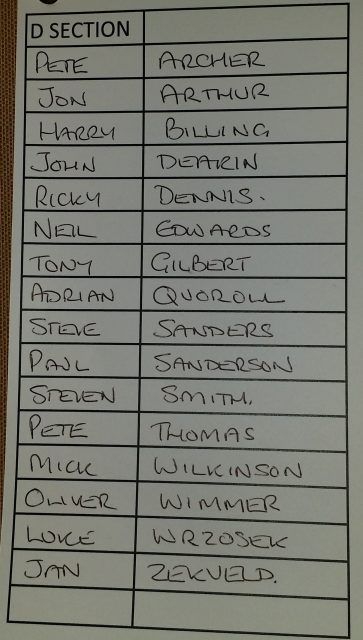 D SECTION
PETE ARCHER
JON ARTHUR
HARRY BILLING
JOHN DEARIN
RICKY DENNIS.
NEIL EDWARDS
TONY GILBERT
ADRIAN QUOROLL
STEVE SANDERS
PAUL SANDERSON
STEVEN SMITH.
PETE THOMAS
MICK WILKINSON
OLIVER WIMMER
LUKE WRZOSEK
JAN ZEKVELD.